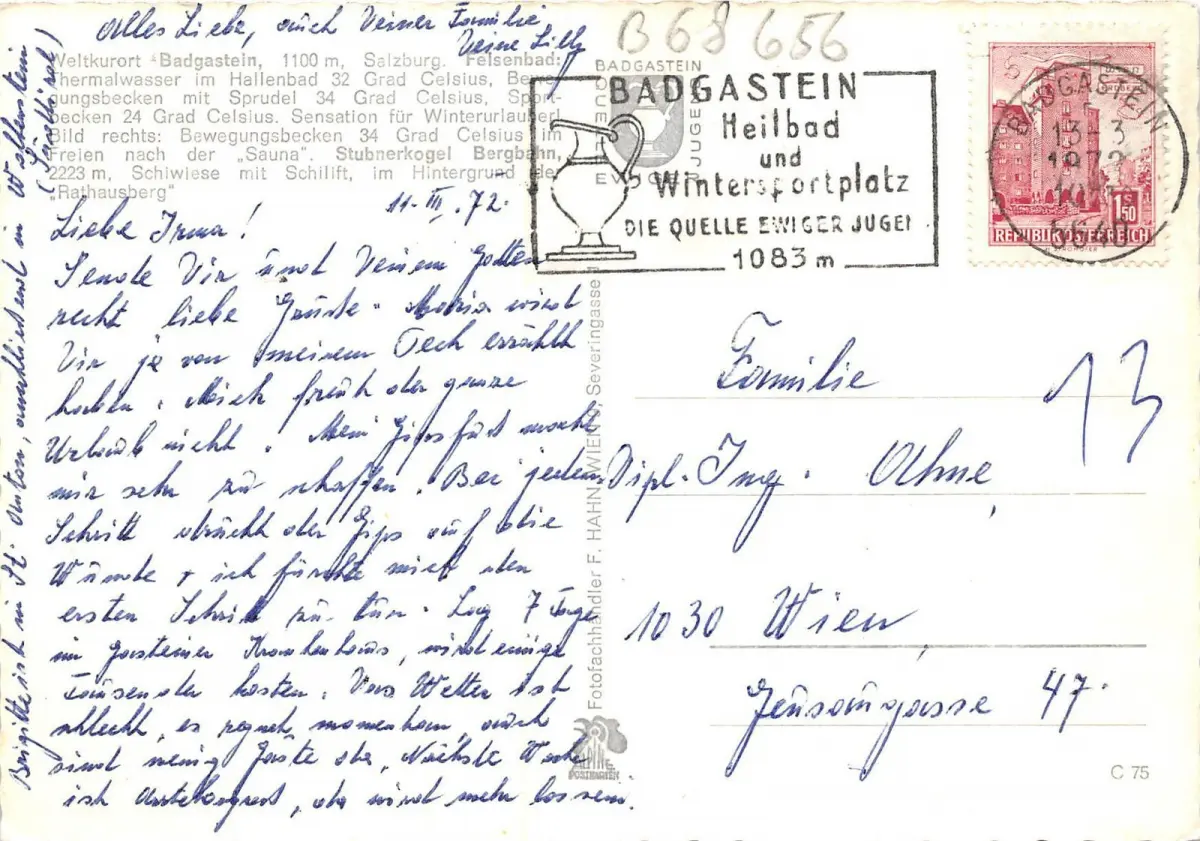 Alles Liebe, auch Deiner Familie
Deine Lilly
B 68 656
Weltkurort Badgastein, 1100 m, Salzburg. Felsenbad:
Thermalwasser im Hallenbad 32 Grad Celsius, Bewe-
gungsbecken mit Sprudel 34 Grad Celsius, Sport-
becken 24 Grad Celsius. Sensation für Winterurlauber!
Bild rechts: Bewegungsbecken 34 Grad Celsius im
Freien nach der „Sauna". Stubnerkogel Bergbahn,
2223 m, Schiwiese mit Schilift, im Hintergrund der
„Rathausberg"
11. III. 72.
Liebe Irma!
Sende Dir und Deinem Gatten
recht liebe Grüße. Maria wird
Dir ja von meinem Pech erzählt
haben. Mich freut der ganze
Urlaub nicht. Mein Gipsfuß macht
mir sehr zu schaffen. Bei jedem
Schritt drückt der Gips auf die
Wunde + ich fürchte mich den
ersten Schritt zu tun. Lag 7 Tage
im Gasteiner Krankenhaus, wird einige
Tausender kosten. Das Wetter ist
schlecht, es regnet momentan, auch
sind wenig Gäste da. Nächste Woche
ist
da wird mehr los sein.
Brigitte ist in St. Anton, anschließend in Wolkenstein
(Südtirol)
BADGASTEIN
QUELLE
EWIGER JUGEND
BADGASTEIN
Heilbad
und
Wintersportplatz
DIE QUELLE EWIGER JUGEN
1083 m
BADGASTEIN
13-3
1972
5640
1S50
REPUBLIK ÖSTERREICH
Fotofachhändler F. HAHN, WIEN 9, Severingasse 1
ALPINE
POSTKARTEN
Familie
13
Dipl. Ing. Ahne
1030 Wien
Jensaugasse 47.
C 75